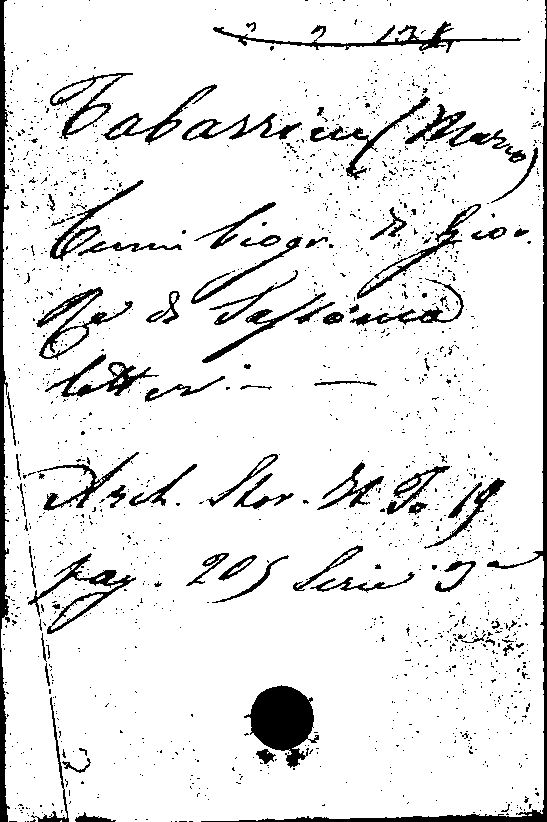 2. 2. 138.
Tabarrini (Marco)
Cenni biogr. di Gior.
Re di Sassonia
letter. —
Arch. Stor. It. To 19
pag. 205 Serie 3a